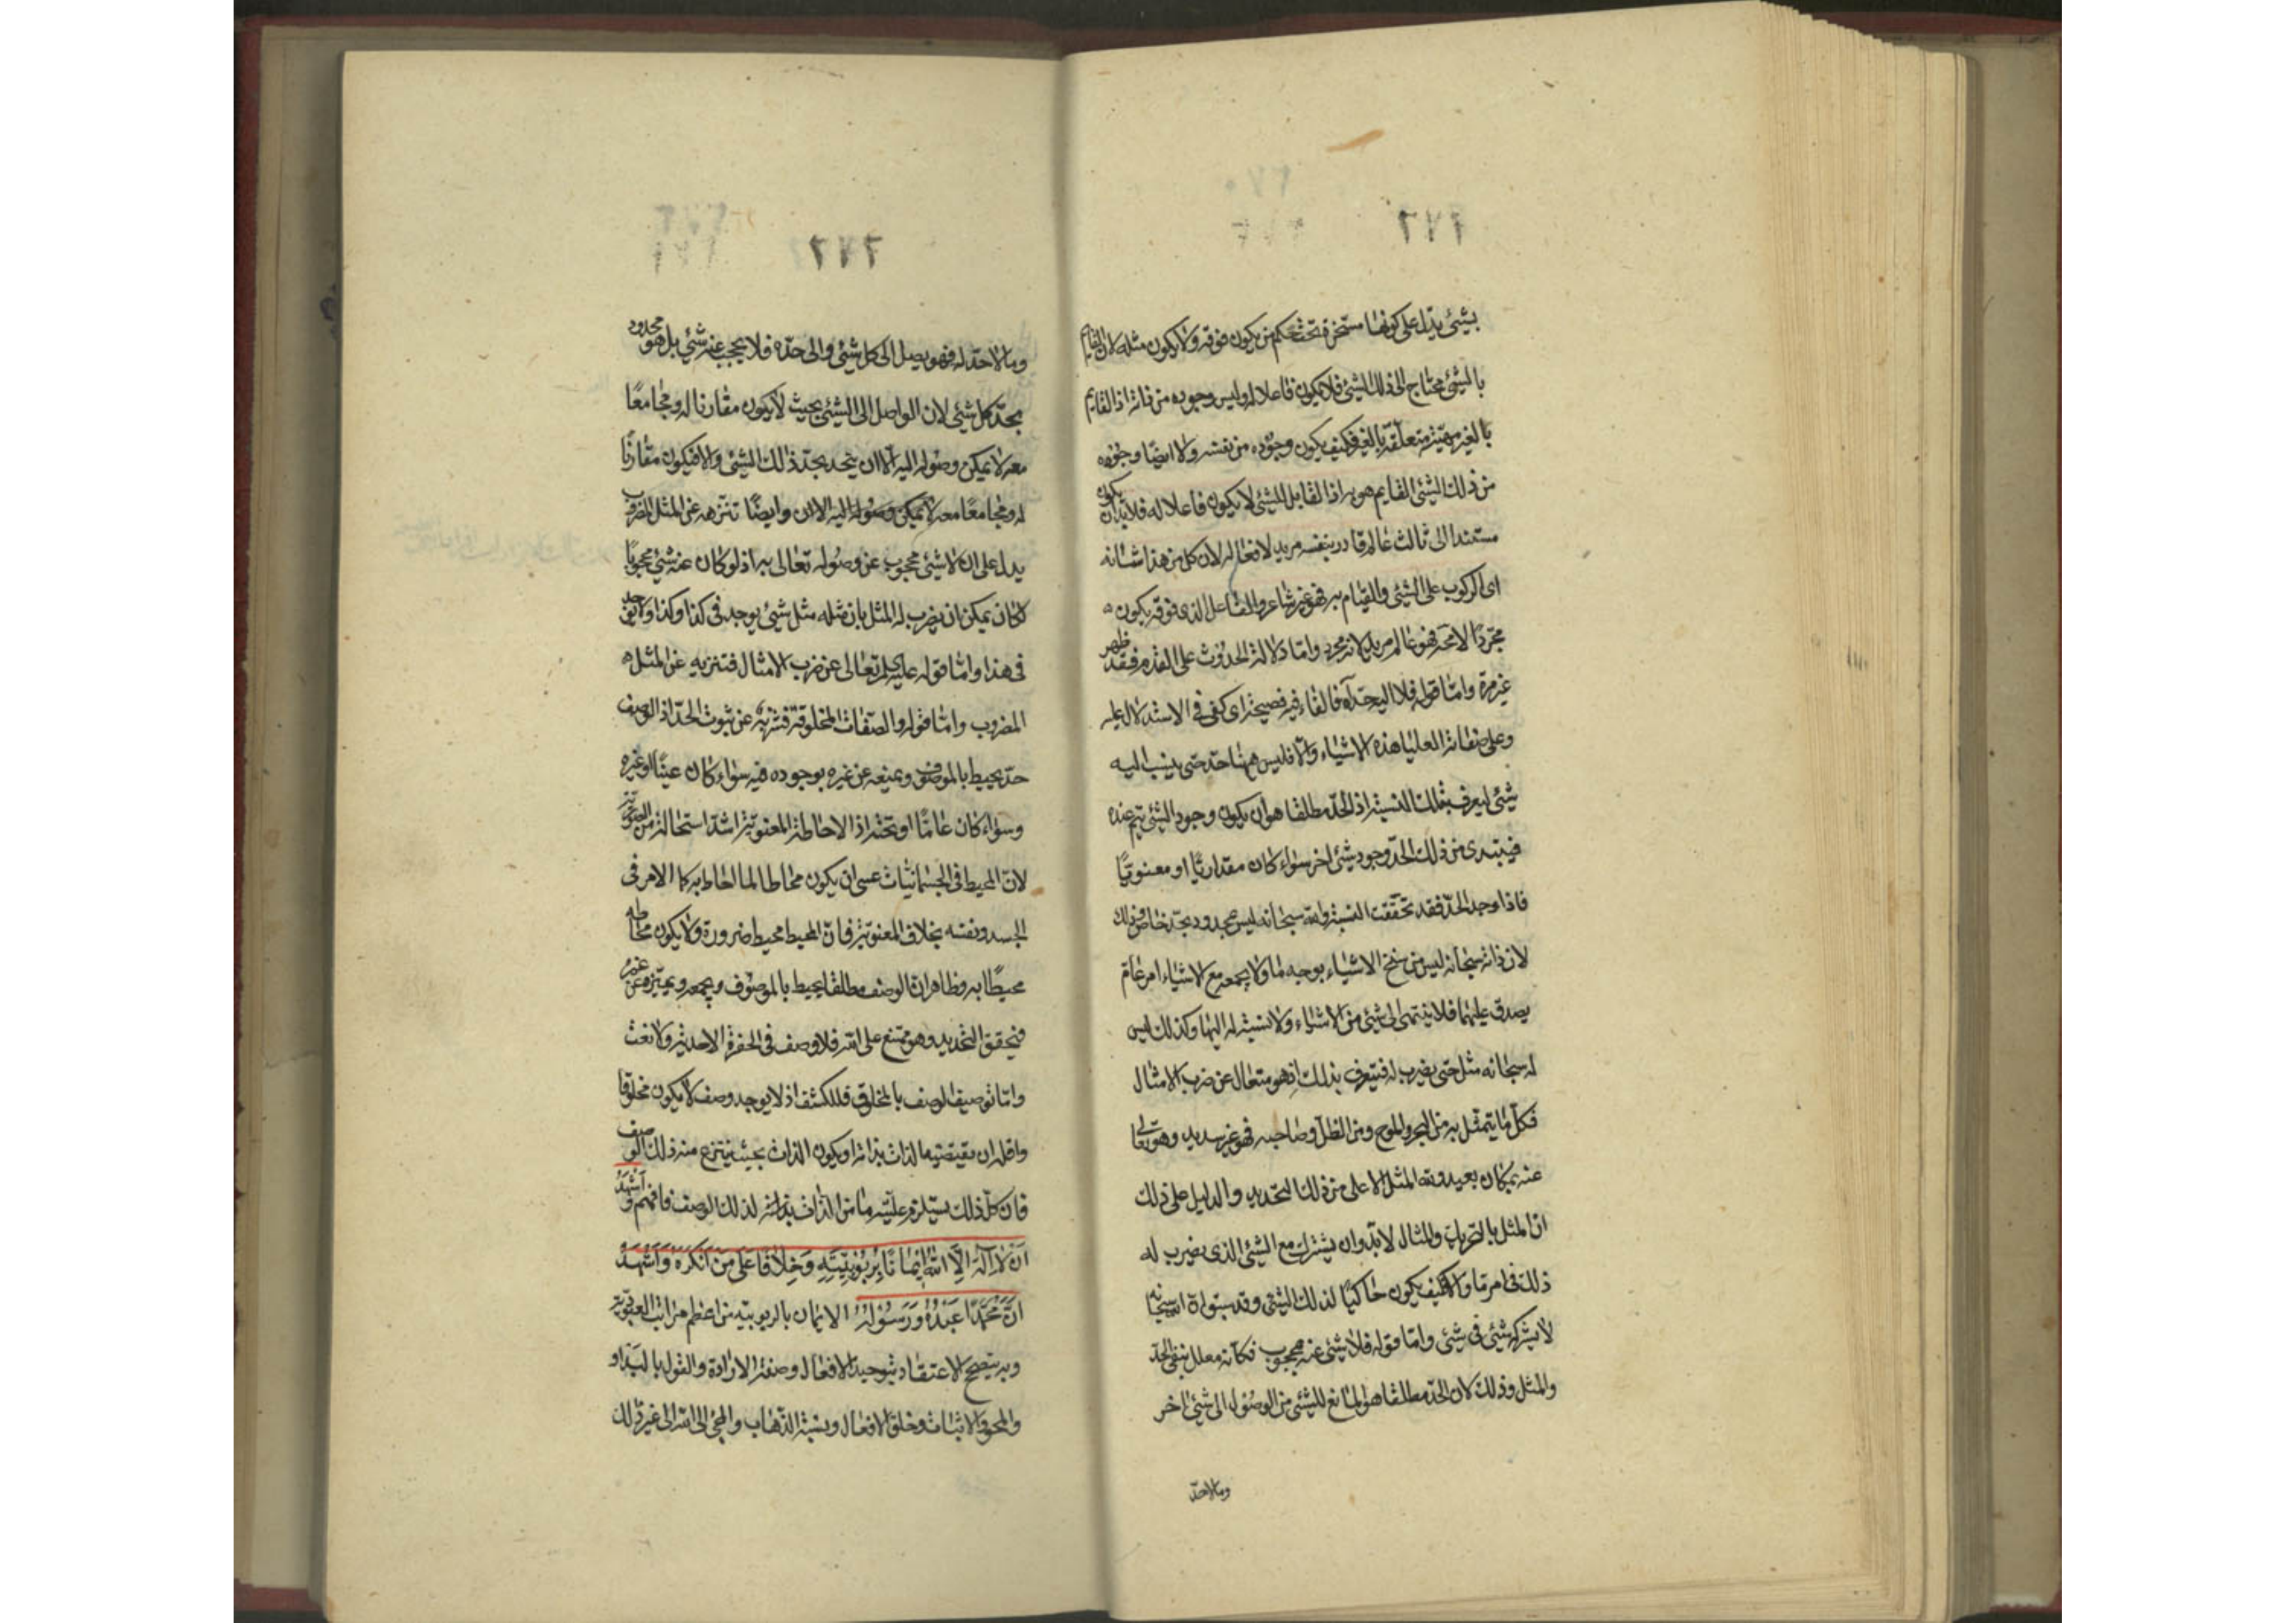 ١٧٦
بشيئ يدل على كونها مسخرة تحت حكم من يكون فوقه ولا يكون مثله لان القايم
بالشيئ محتاج الى ذلك الشيئ فلا يكون فاعلا له وليس وجوده من ذاته اذ القايم
بالغير مهيته متعلقة بالغير فكيف يكون وجوده من نفسه ولا ايضا وجوده
من ذلك الشيئ القايم هو به اذ القابل للشيئ لا يكون فاعلا له فلا بد ان يكون
مستندا الى ثالث عالم قادر بنفسه مريد لافعاله لان كل من هذا شانه
اى الركوب على الشيئ والقيام به فهو غير شاعر والفاعل الذى فوقه يكون
مجردا لا محة فهو عالم مريد لانه مجرد واما دلالة الحدوث على القدم فقد ظهر
غير مرة واما قوله فلا اليه حد آه فالفاء فيه فصيحة اى كفى فى الاستدلال عليه
وعلى صفاته العليا هذه الاشياء والا فليس ههنا حد حتى ينسب اليه
شيئ ليعرف بتلك النسبة اذ الحد مطلقا هو ان يكون وجود الشيئ يتم عنده
فيبتدى من ذلك الحد وجود شيئ اخر سواء كان مقداريا او معنويا
فاذا وجد الحد فقد تحققت النسبة والله سبحانه ليس محدود بحد خاص وذلك
لان ذاته سبحانه ليس من سنخ الاشياء بوجه ما ولا يجمعه مع الاشياء امر عام
يصدق عليهما فلا ينتهى الى شيئ من الاشياء ولا نسبة له اليها وكذلك ليس
له سبحانه مثل حتى يضرب له فيتعرف بذلك اذ هو متعال عن ضرب الامثال
فكل ما يتمثل به من البحر والموج ومن الظل وصاحبه فهو غير سديد وهو تعالى
عنه بمكان بعيد ولله المثل الاعلى من ذلك التحديد والدليل على ذلك
ان المثل بالتحريك والمثال لا بد وان يشترك مع الشيئ الذى يضرب له
ذلك فى امر ما والا فكيف يكون حاكيا لذلك الشيئ وقد سبق انه سبحانه
لا يشركه شيئ فى شيئ واما قوله فلا شيئ عنه محجوب فكانه معلل بنفى الحد
والمثل وذلك لان الحد مطلقا هو المانع للشيئ من الوصول الى شيئ اخر
وما لا حد
وما لا حد له فهو يصل الى كل شيئ والى حده فلا يحجب عنه شيئ بل هو محدود
بحد كل شيئ لان الواصل الى الشيئ بحيث لا يكون مقارنا له ومجامعا
معه لا يمكن وصوله اليه الا ان يتحد بحد ذلك الشيئ والا فيكون مقارنا
له ومجامعا معه لا يمكن وصوله اليه الا ان وايضا تنزهه عن المثل المضروب
يدل على ان لا شيئ محجوب عن وصوله تعالى به اذ لو كان عنه شيئ محجوبا
لكان يمكن ان يضرب له المثل بان مثله مثل شيئ يوجد فى كذا وكذا ولا يوجد
فى هذا واما قوله عليه لم تعالى عن ضرب الامثال فتنزيه عن المثل
المضروب واما قوله والصفات المخلوقة فتنزيه عن ثبوت الحد اذ الوصف
حد يحيط بالموصوف ويمنعه عن غيره بوجوده فيه سواء كان عينا او غيره
وسواء كان عاما او تحته اذ الاحاطة المعنوية اشد استحالة من
لان المحيط فى الجسمانيات عسى ان يكون محاطا لما احاط به كما الامر فى
الجسد ونفسه بخلاف المعنوية فان المحيط محيط ضرورة ولا يكون محاطه
محيطا به وظاهر ان الوصف مطلقا يحيط بالموصوف ويجمعه ويميزه عن غيره
فيحقق التحديد وهو ممتنع على الله فلا وصف فى الحضرة الاحدية ولا نعت
واما توصيف الوصف بالمخلوق فللكشف اذ لا يوجد وصف لا يكون مخلوقا
واقله ان يقتضيه الذات بذاته او يكون الذات بحيث ينتزع منه ذلك الوصف
فان كل ذلك يستلزم علية ما من الذات بذاته لذلك الوصف فافهم و أشهد
ان لا اله الا الله ايمانا بربوبيته وخلافا على من انكره واشهد
ان محمدا عبده ورسوله الايمان بالربوبية من اعظم مراتب العبودية
وبه يتصحح الاعتقاد بتوحيد الافعال وصفة الارادة والقول بالبداو
والمحو والاثبات وخلق الافعال ونسبة الذهاب والمجئ الى الله الى غير ذلك